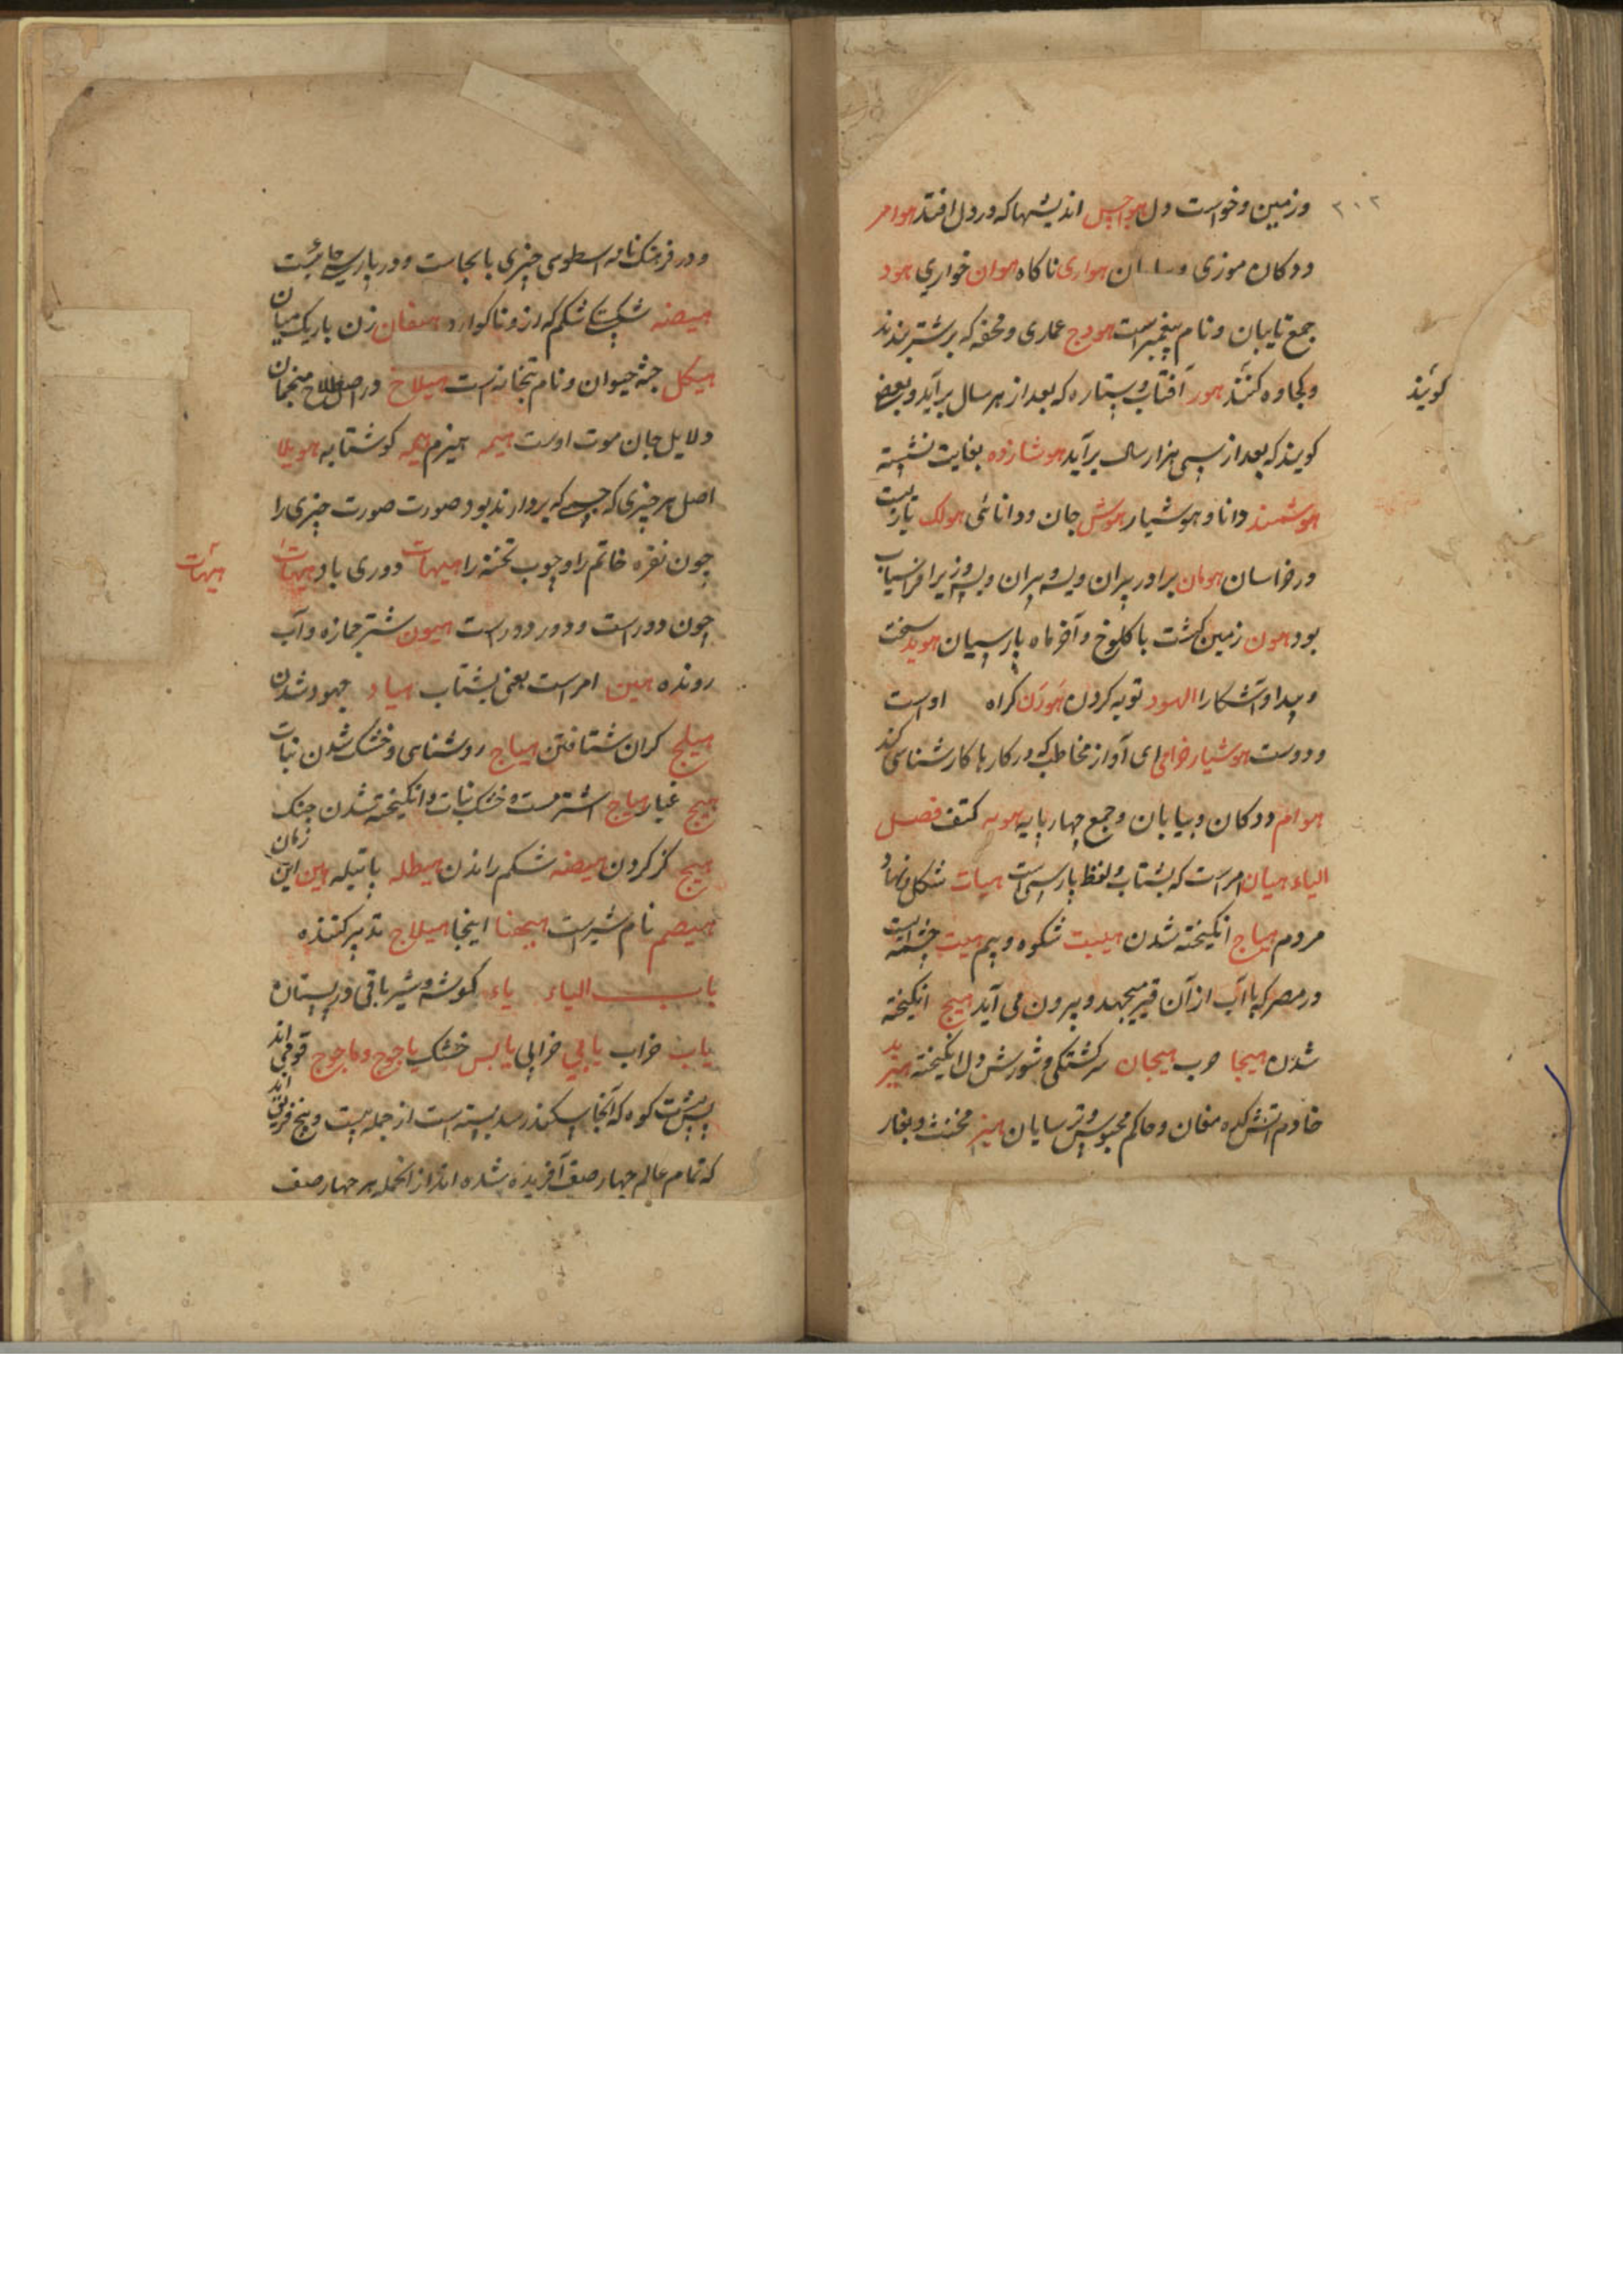 ۲۰۲
ورزمین وخواست دل هواجس اندیشها که در دل افتد هوامر
ددکان موزی هواری ناکاه هوان خواری هود
جمع تایبان ونام پیغمبر است هودج عماری ومحفه که بر شتر بندند
وکجاوه کنند هور آفتاب وستاره که بعد از هر سال برآید وبعضی
کویند
کویند که بعد از سی هزار سال برآید هوشازده بغایت تشنه
هوشمند دانا وهوشیار هوش جان ودانائی هولک
در خراسان هومان برادر پیران ویسه وپیران وزیر افراسیاب
بود هون زمین کشت با کلوخ وآخر ماه پارسیان هوید سخت
وپیدا وآشکارا الهود توبه کردن هوذن کراه اوست
ودوست هوشیار خرامی ای آواز مخاطب که در کارها کارشناسی کند
هوام ددکان وبیابان وجمع چهارپایه هویه کتف فصل
الیاء هیان امر است که بشتاب ولفظ پارسی است هیات شکل ونهاد
مردم هیاج انکیخته شدن هیبت شکوه وبیم هیت چشمه ایست
در مصر که با آب از آن قیر میجهد وبیرون می آید هیج انکیخته
شدن هیجا حرب هیجان سرکشتکی وشورش دل انکیخته هیربد
خادم آتش کده مغان وحاکم محبوس وترسایان هیز مخنث وبغار
ودر فرهنک نامه اسطوسی چیزی بابجاست ودر پارسی
هیضه شکم که ازو ناکوارد هیفان زن باریک میان
هیکل جثه حیوان ونام بتخانه است هیلاج در اصطلاح منجمان
دلایل جان موت اوست هیمه هیزم هیه کوشتابه هویلا
اصل هر چیزی که بود صورت صورت چیزی را
چون نقره خاتم را وچوب تخته را هیهات دوری باد هیهات
هیهات
چون دور است ودور دور است هیون شتر جمازه وآب
رونده هین امر است یعنی بشتاب هیاد جهود شدن
هیلج کران شتافتن هیاج روشنای وخشک شدن نبات
هیج غبار هیاج اشتر مست وخشک نبات وانکیخته شدن جنک
هیج کز کردن هیضه شکم راندن هیطله پاتیله هین این زمان
هیصم نام شیر است هیهنا اینجا هیلاج تدبیر کننده
باب الیاء یاء کوشه وشیر باقی در پستان
یاب خراب یابی خرابی یابس خشک یاجوج وماجوج قومی اند
پس پشت کوه که آنجا سکندر سد بسته است از جمله بیست وپنج فریق اند
که تمام عالم چهار صنف آفریده شده اند از آنجمله هر چهار صنف